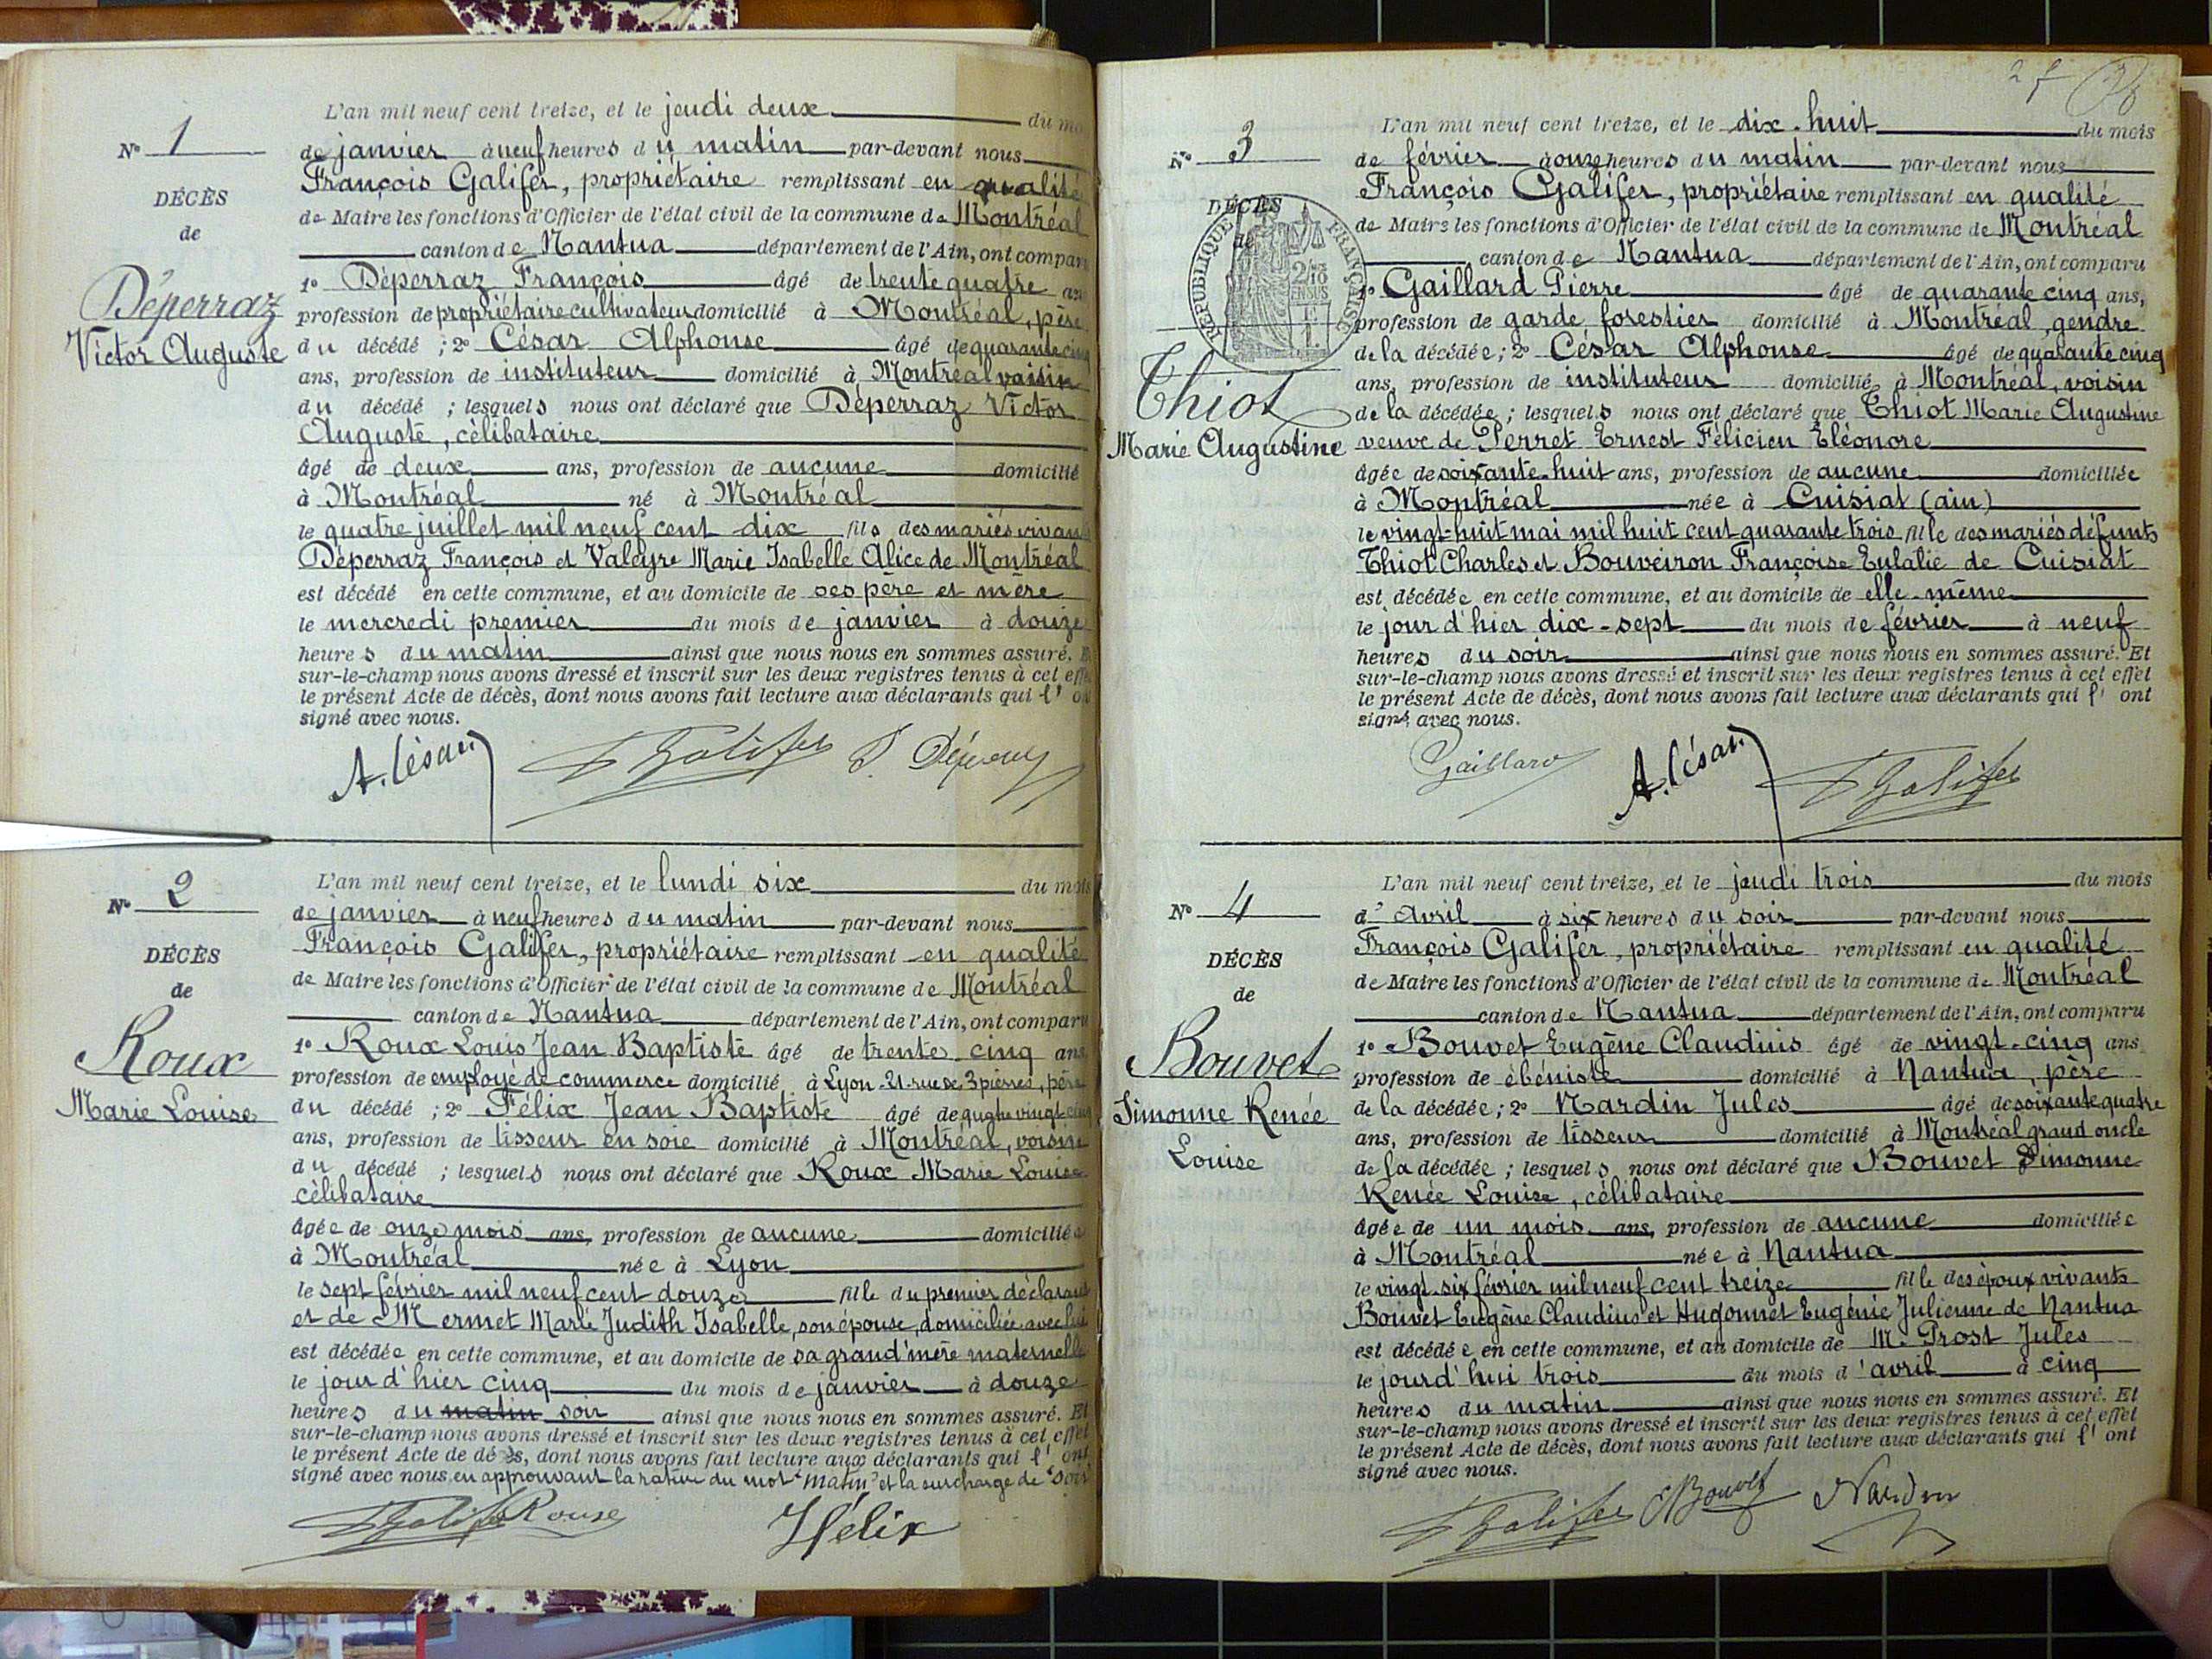 L'an mil neuf cent treize, et le jeudi deux du mo
N° 1
de janvier à neuf heures du matin par-devant nous
François Galifer, propriétaire remplissant en qualité
DÉCÈS
de Maire les fonctions d'Officier de l'état civil de la commune de Montréal
de
canton de Nantua département de l'Ain, ont comparu
1° Déperraz François âgé de trente quatre ans
Déperraz
profession de propriétaire cultivateur domicilié à Montréal, père
Victor Auguste
du décédé ; 2° César Alphonse âgé de quarante cinq
ans, profession de instituteur domicilié à Montréal voisin
du décédé ; lesquels nous ont déclaré que Déperraz Victor
Auguste, célibataire
âgé de deux ans, profession de aucune domicilié
à Montréal né à Montréal
le quatre juillet mil neuf cent dix fils des mariés vivants
Déperraz François et Valeyre Marie Isabelle Alice de Montréal
est décédé en cette commune, et au domicile de ses père et mère
le mercredi premier du mois de janvier à douze
heures du matin ainsi que nous nous en sommes assuré. E
sur-le-champ nous avons dressé et inscrit sur les deux registres tenus à cet effe
le présent Acte de décès, dont nous avons fait lecture aux déclarants qui l' on
signé avec nous.
A. César F Galifer F. Déperraz
L'an mil neuf cent treize, et le lundi six du mois
N° 2
de janvier à neuf heures du matin par-devant nous
François Galifer, propriétaire remplissant en qualité
DÉCÈS
de Maire les fonctions d'Officier de l'état civil de la commune de Montréal
de
canton de Nantua département de l'Ain, ont comparu
1° Roux Louis Jean Baptiste âgé de trente cinq ans
Roux
profession de employé de commerce domicilié à Lyon 21 rue de 3 pierres, père
Marie Louise
du décédé ; 2° Félix Jean Baptiste âgé de quatre vingt cinq
ans, profession de tisseur en soie domicilié à Montréal, voisin
du décédé ; lesquels nous ont déclaré que Roux Marie Louise
célibataire
âgée de onze mois ans, profession de aucune domiciliée
à Montréal née à Lyon
le sept février mil neuf cent douze fille du premier déclarant
et de Mermet Marie Judith Isabelle, son épouse, domiciliée avec lui
est décédée en cette commune, et au domicile de sa grand'mère maternelle
le jour d'hier cinq du mois de janvier à douze
heures du matin soir ainsi que nous nous en sommes assuré. Et
sur-le-champ nous avons dressé et inscrit sur les deux registres tenus à cet effet
le présent Acte de décès, dont nous avons fait lecture aux déclarants qui l' ont
signé avec nous en approuvant la rature du mot "matin" et la surcharge de "soir"
F Galifer Roux Félix
27
L'an mil neuf cent treize, et le dix-huit du mois
N° 3
de février à onze heures du matin par-devant nous
François Galifer, propriétaire remplissant en qualité
DÉCÈS
de Maire les fonctions d'Officier de l'état civil de la commune de Montréal
de
RÉPUBLIQUE FRANÇAISE
2/10 EN SUS
canton de Nantua département de l'Ain, ont comparu
1° Gaillard Pierre âgé de quarante cinq ans,
profession de garde forestier domicilié à Montréal, gendre
Thiot
de la décédée ; 2° César Alphonse âgé de quarante cinq
ans, profession de instituteur domicilié à Montréal, voisin
de la décédée ; lesquels nous ont déclaré que Thiot Marie Augustine
Marie Augustine
veuve de Perret Ernest Félicien Eléonore
âgée de soixante-huit ans, profession de aucune domiciliée
à Montréal née à Cuisiat (ain)
le vingt-huit mai mil huit cent quarante trois fille des mariés défunts
Thiot Charles et Bouveiron Françoise Eulalie de Cuisiat
est décédée en cette commune, et au domicile de elle-même
le jour d'hier dix-sept du mois de février à neuf
heures du soir ainsi que nous nous en sommes assuré. Et
sur-le-champ nous avons dressé et inscrit sur les deux registres tenus à cet effet
le présent Acte de décès, dont nous avons fait lecture aux déclarants qui l' ont
signé avec nous.
Gaillard A. César F Galifer
L'an mil neuf cent treize, et le jeudi trois du mois
N° 4
d' avril à six heures du soir par-devant nous
François Galifer, propriétaire remplissant en qualité
DÉCÈS
de Maire les fonctions d'Officier de l'état civil de la commune de Montréal
de
canton de Nantua département de l'Ain, ont comparu
1° Bouvet Eugène Claudius âgé de vingt-cinq ans
Bouvet
profession de ébéniste domicilié à Nantua, père
Simonne Renée
de la décédée ; 2° Nardin Jules âgé de soixante quatre
ans, profession de tisseur domicilié à Montréal grand oncle
Louise
de la décédée ; lesquels nous ont déclaré que Bouvet Simonne
Renée Louise, célibataire
âgée de un mois ans, profession de aucune domiciliée
à Montréal née à Nantua
le vingt-six février mil neuf cent treize fille des époux vivants
Bouvet Eugène Claudius et Hugonnet Eugénie Julienne de Nantua
est décédée en cette commune, et au domicile de M. Prost Jules
le jourd'hui trois du mois d'avril à cinq
heures du matin ainsi que nous nous en sommes assuré. Et
sur-le-champ nous avons dressé et inscrit sur les deux registres tenus à cet effet
le présent Acte de décès, dont nous avons fait lecture aux déclarants qui l' ont
signé avec nous.
F Galifer E Bouvet Nardin